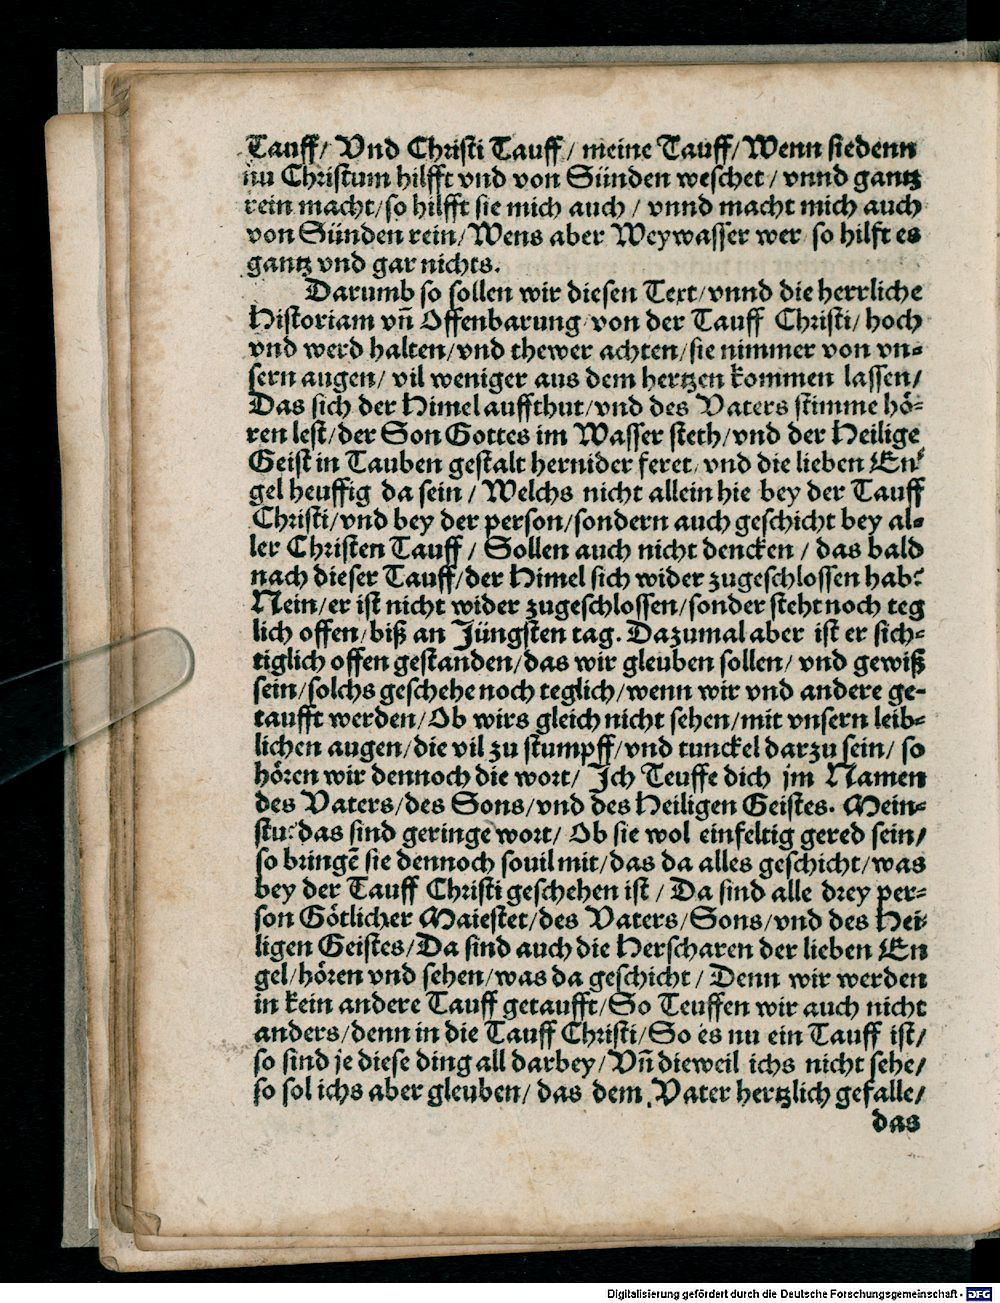 Tauff/ Vnd Christi Tauff/ meine Tauff/ Wenn sie denn
nu Christum hilfft vnd von Sünden weschet/ vnnd gantz
rein macht/ so hilfft sie mich auch/ vnnd macht mich auch
von Sünden rein/ Wens aber Weywasser wer so hilft es
gantz vnd gar nichts.
Darumb so sollen wir diesen Text/ vnnd die herrliche
Historiam vñ Offenbarung von der Tauff Christi/ hoch
vnd werd halten/ vnd thewer achten/ sie nimmer von vn⸗
sern augen/ vil weniger aus dem hertzen kommen lassen/
Das sich der Himel auffthut/ vnd des Vaters stimme hö⸗
ren lest/ der Son Gottes im Wasser steth/ vnd der Heilige
Geist in Tauben gestalt hernider feret/ vnd die lieben En⸗
gel heuffig da sein/ Welchs nicht allein hie bey der Tauff
Christi/ vnd bey der person/ sondern auch geschicht bey al⸗
ler Christen Tauff/ Sollen auch nicht dencken/ das bald
nach dieser Tauff/ der Himel sich wider zugeschlossen hab?
Nein/ er ist nicht wider zugeschlossen/ sonder steht noch teg
lich offen/ biß an Jüngsten tag. Dazumal aber ist er sich⸗
tiglich offen gestanden/ das wir gleuben sollen/ vnd gewiß
sein/ solchs geschehe noch teglich/ wenn wir vnd andere ge⸗
taufft werden/ Ob wirs gleich nicht sehen/ mit vnsern leib⸗
lichen augen/ die vil zu stumpff/ vnd tunckel darzu sein/ so
hören wir dennoch die wort/ Ich Teuffe dich jm Namen
des Vaters/ des Sons/ vnd des Heiligen Geistes. Mein⸗
stu? das sind geringe wort/ Ob sie wol einfeltig gered sein/
so bringẽ sie dennoch souil mit/ das da alles geschicht/ was
bey der Tauff Christi geschehen ist/ Da sind alle drey per⸗
son Götlicher Maiestet/ des Vaters/ Sons/ vnd des Hei⸗
ligen Geistes/ Da sind auch die Herscharen der lieben En
gel/ hören vnd sehen/ was da geschicht/ Denn wir werden
in kein andere Tauff getaufft/ So Teuffen wir auch nicht
anders/ denn in die Tauff Christi/ So es nu ein Tauff ist/
so sind je diese ding all darbey/ Vñ dieweil ichs nicht sehe/
so sol ichs aber gleuben/ das dem Vater hertzlich gefalle/
das
Digitalisierung gefördert durch die Deutsche Forschungsgemeinschaft - DFG